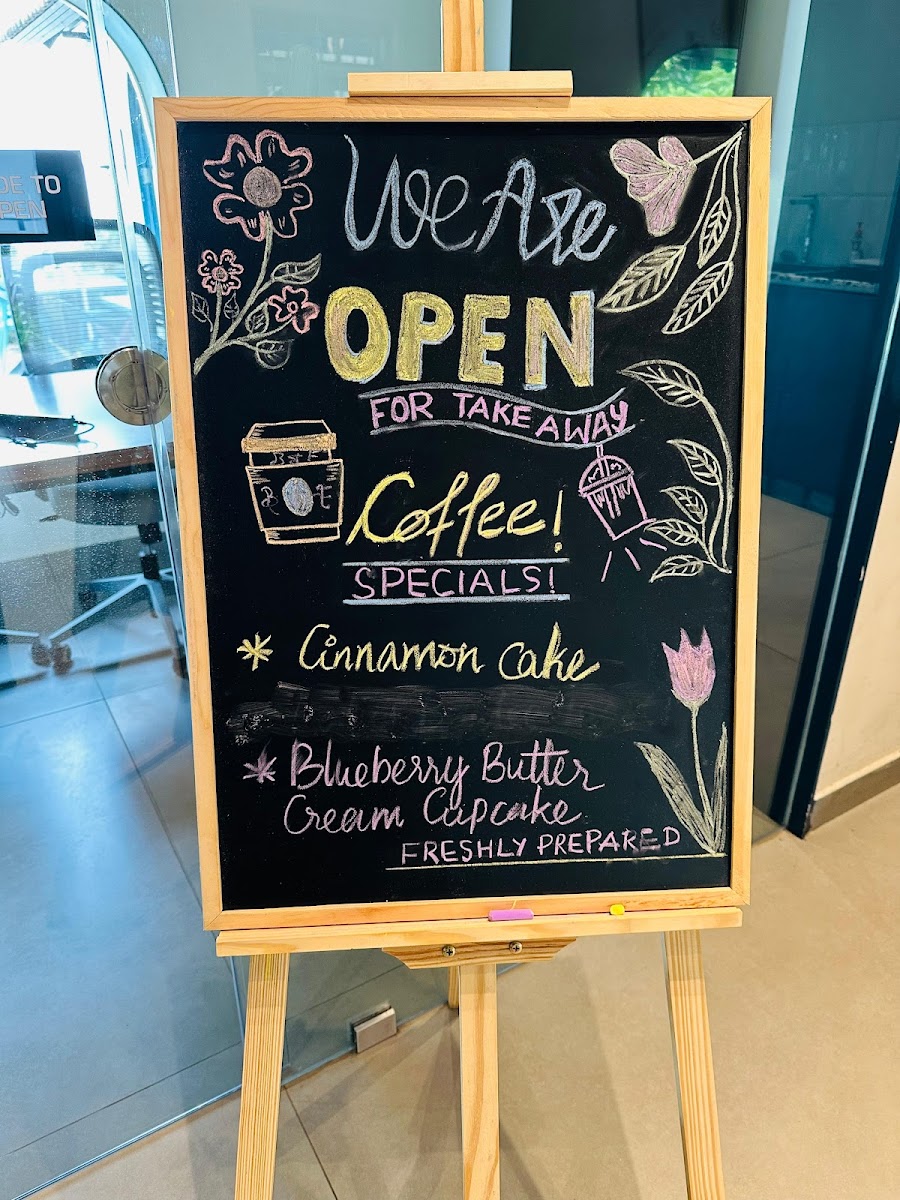 We Are
OPEN
FOR TAKE AWAY
Coffee!
SPECIALS!
* Cinnamon cake
* Blueberry Butter
Cream Cupcake
FRESHLY PREPARED
DE TO
PEN